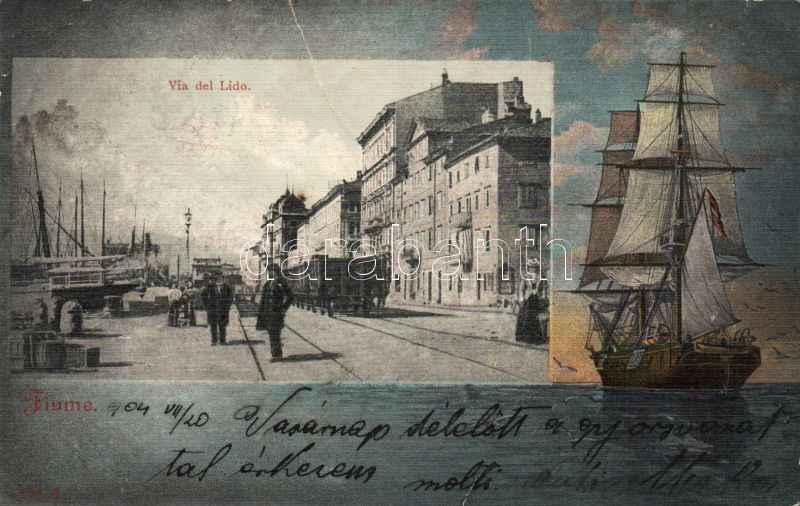 Via del Lido.
darabanth.com
Fiume. 904 VII/20 Vasárnap délelőtt a gyorsvonat
tal érkezem